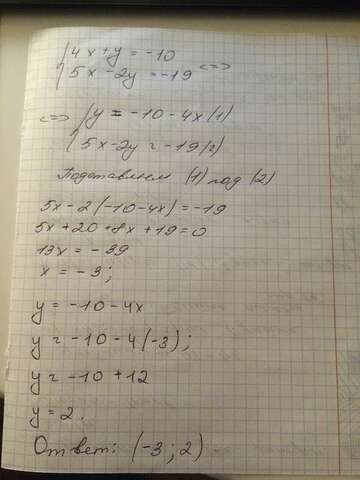 { 4x+y = -10
{ 5x-2y = -19 <=>
<=> { y = -10-4x (1)
{ 5x-2y = -19 (2)
Подставляем (1) под (2)
5x-2(-10-4x)=-19
5x+20+8x+19=0
13x = -39
x = -3;
y = -10-4x
y = -10-4(-3);
y = -10+12
y = 2.
Ответ: (-3; 2)